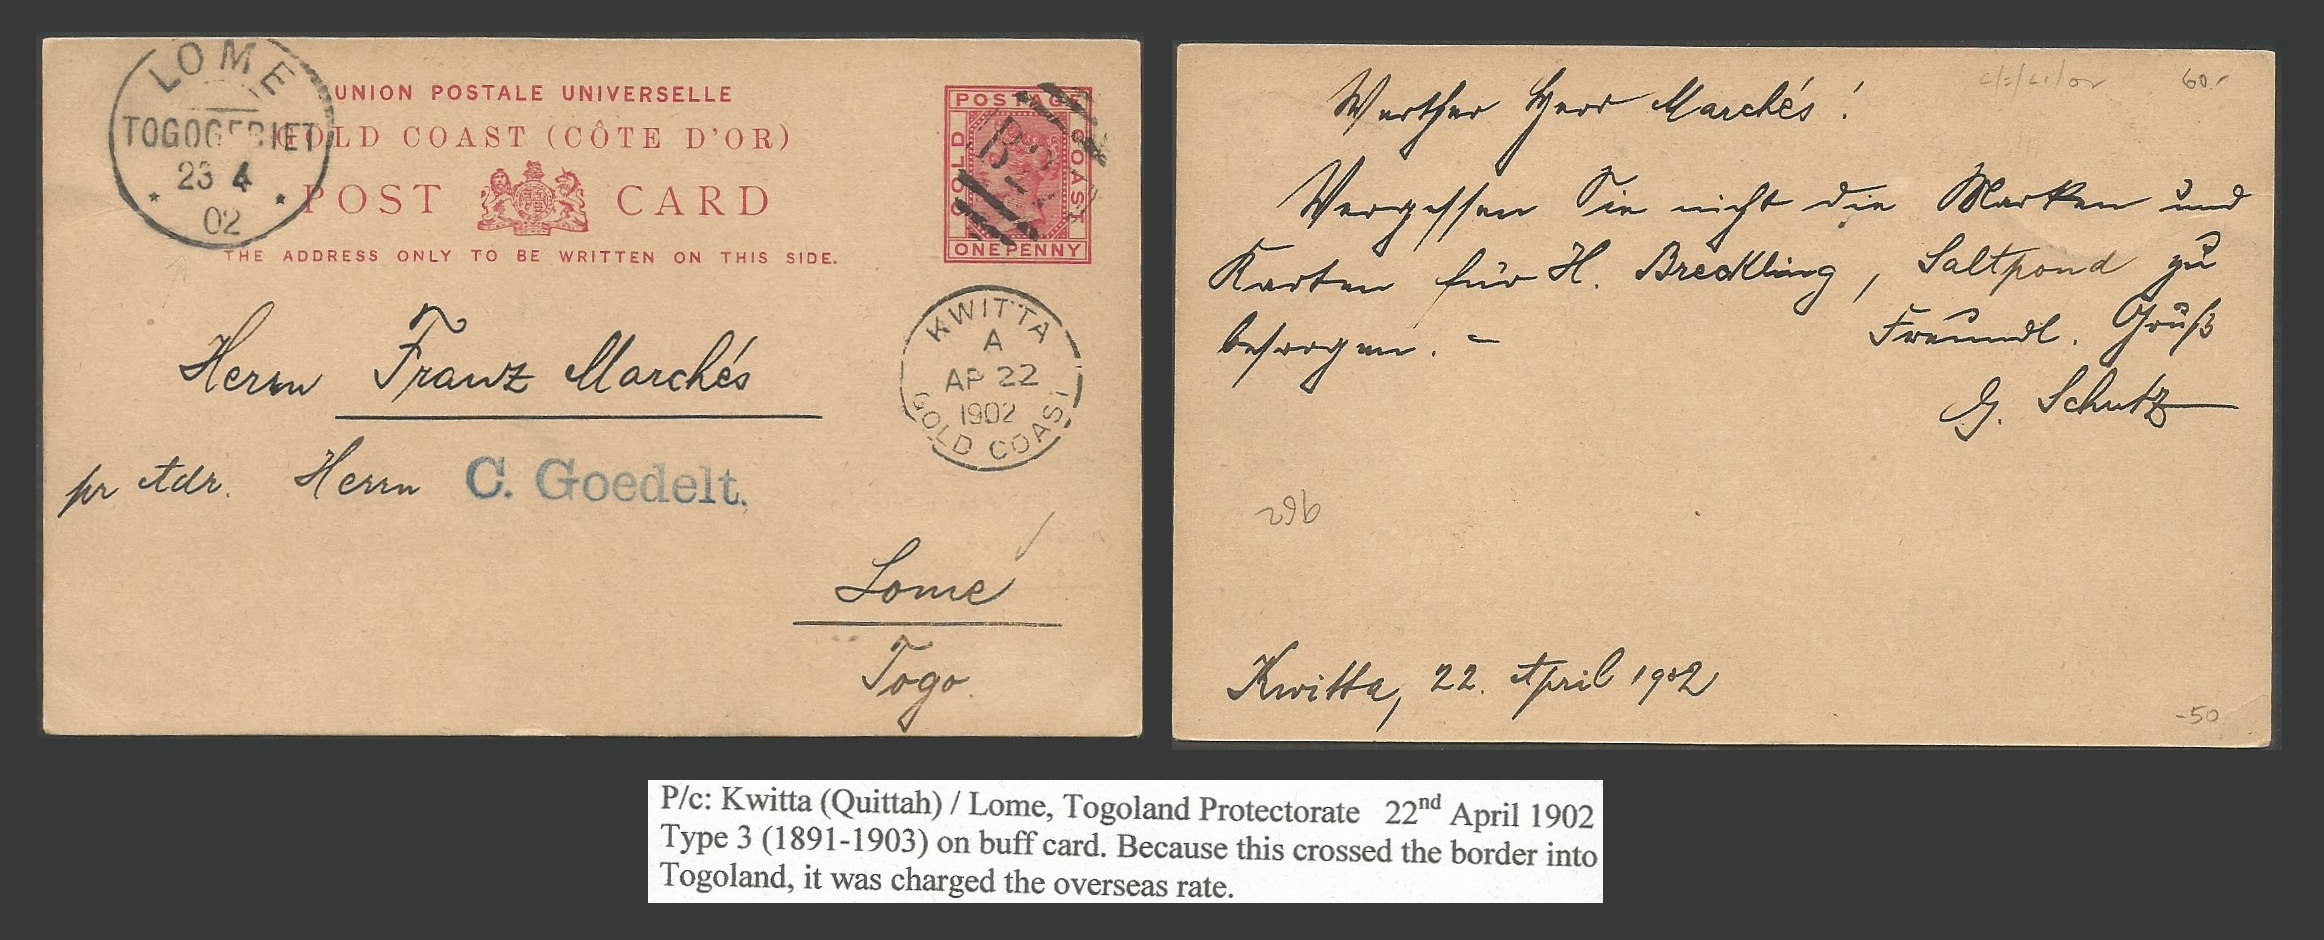 LOME
TOGOGEBIET
23 4
02
UNION POSTALE UNIVERSELLE
GOLD COAST (CÔTE D'OR)
POST CARD
THE ADDRESS ONLY TO BE WRITTEN ON THIS SIDE.
POSTAGE
GOLD
COAST
ONE PENNY
B22
KWITTA
A
AP 22
1902
GOLD COAST
Herrn Franz Marchés
pr Adr. Herrn C. Goedelt.
Lomé
Togo.
60.-
Werther Herr Marchés!
Vergessen Sie nicht die Marken und
Karten für H. Breckling, Saltpond zu
besorgen. -
Freundl. Gruß
G. Schutz
296
Kwitta, 22. April 1902
-50
P/c: Kwitta (Quittah) / Lome, Togoland Protectorate 22nd April 1902
Type 3 (1891-1903) on buff card. Because this crossed the border into
Togoland, it was charged the overseas rate.